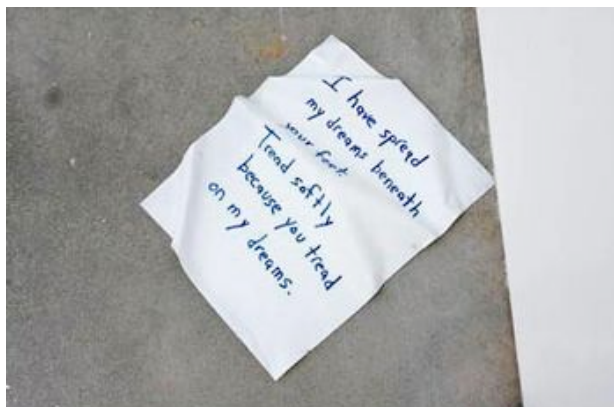 I have spread
my dreams beneath
your feet.
Tread softly
because you tread
on my dreams.